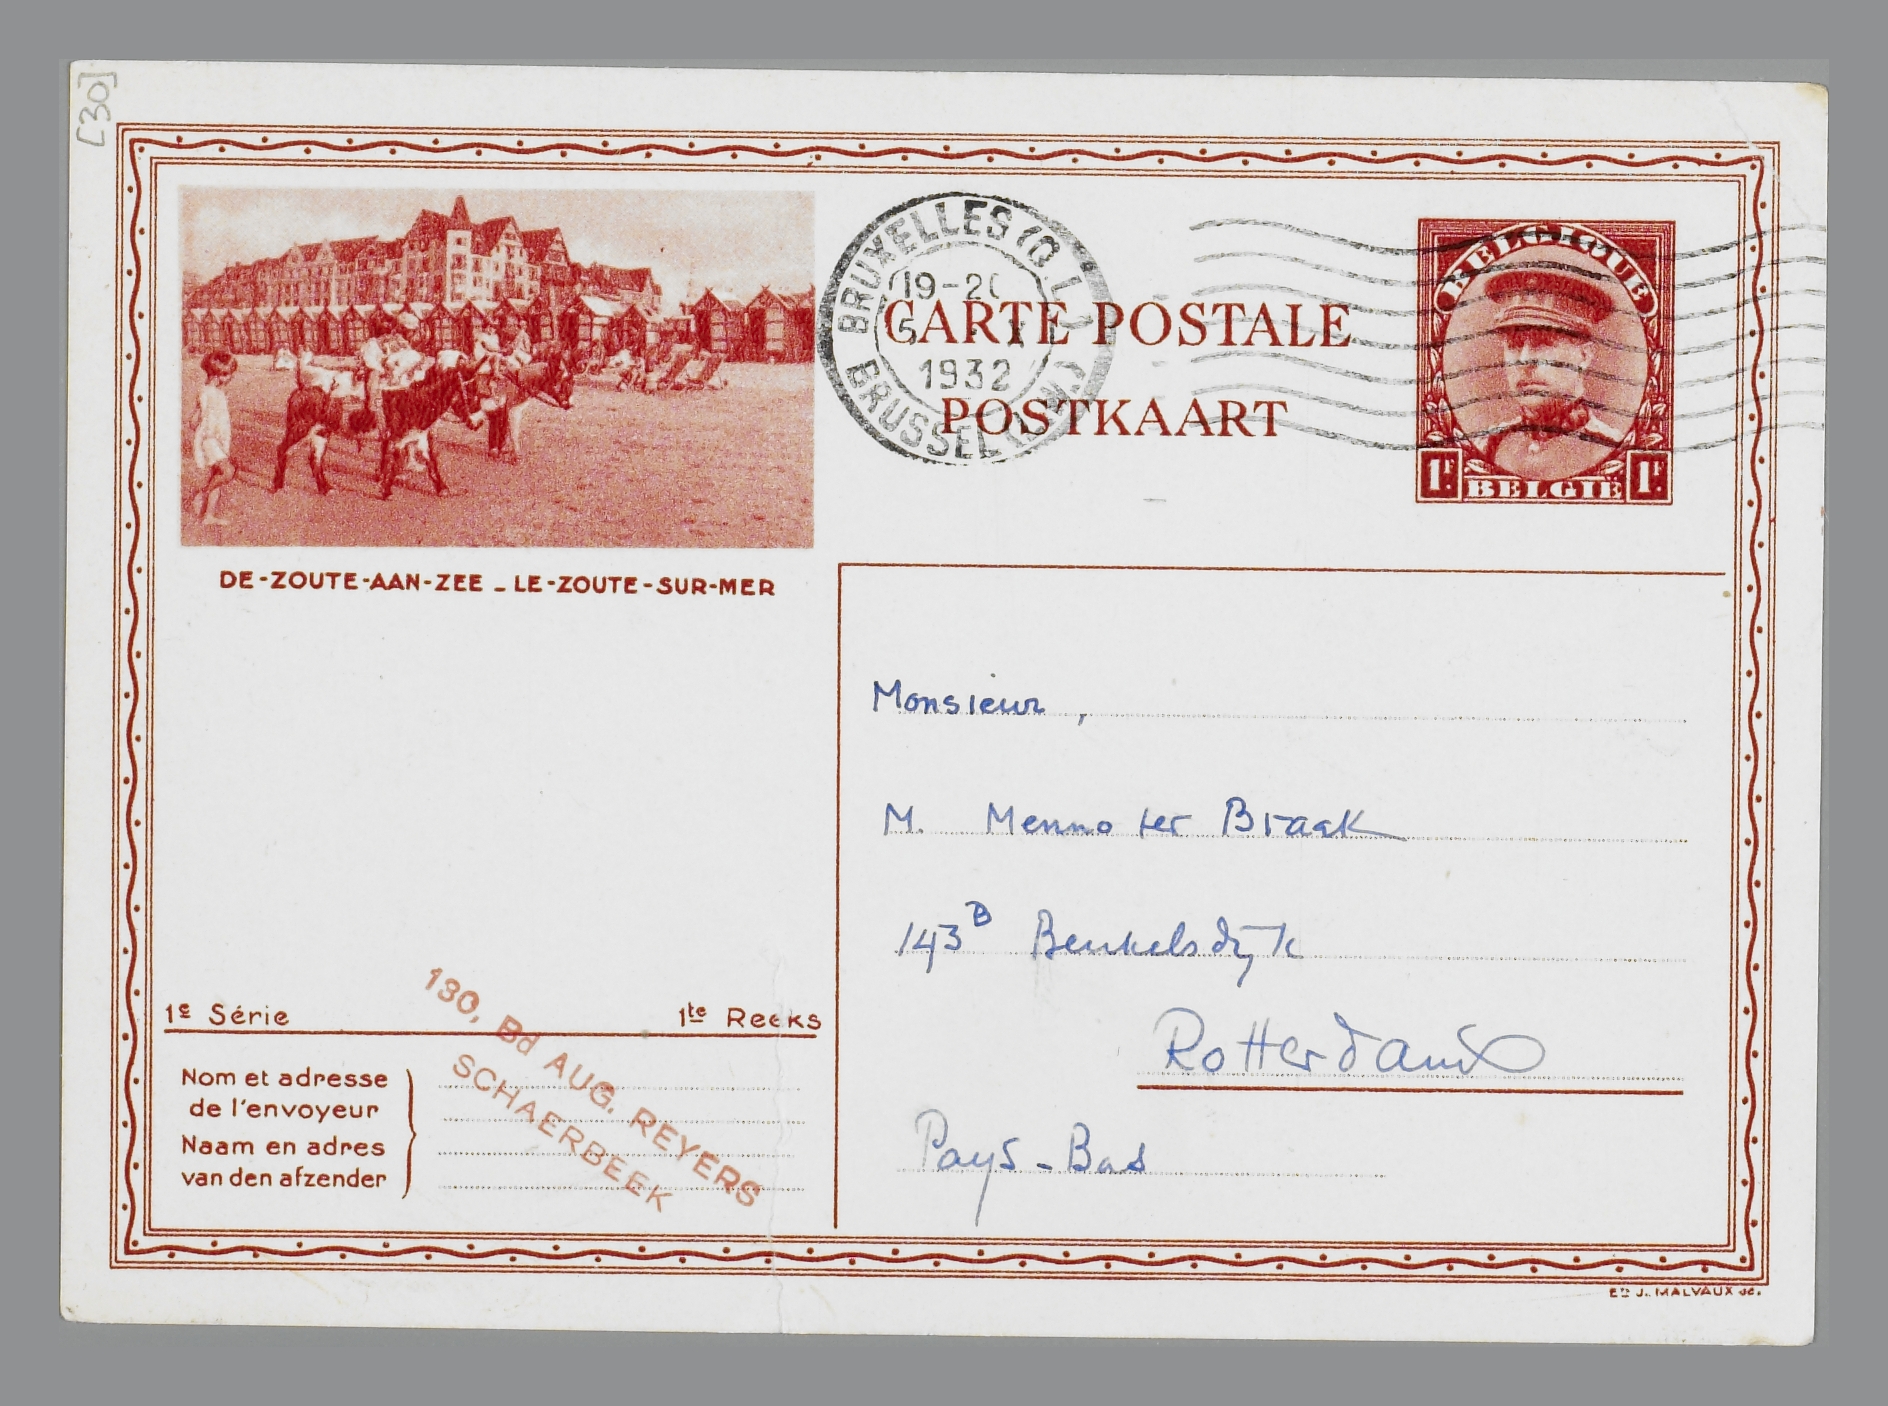 [30]
BRUXELLES (Q.L.)
19-20
1932
BRUSSEL
CARTE POSTALE
POSTKAART
BELGIQUE
1F. BELGIE 1F.
DE-ZOUTE-AAN-ZEE - LE-ZOUTE-SUR-MER
Monsieur,
M. Menno ter Braak
143B Beukelsdijk
Rotterdam
Pays-Bas
1e Série 1te Reeks
Nom et adresse
de l'envoyeur
Naam en adres
van den afzender
130, Bd AUG. REYERS
SCHAERBEEK
ED J. MALVAUX